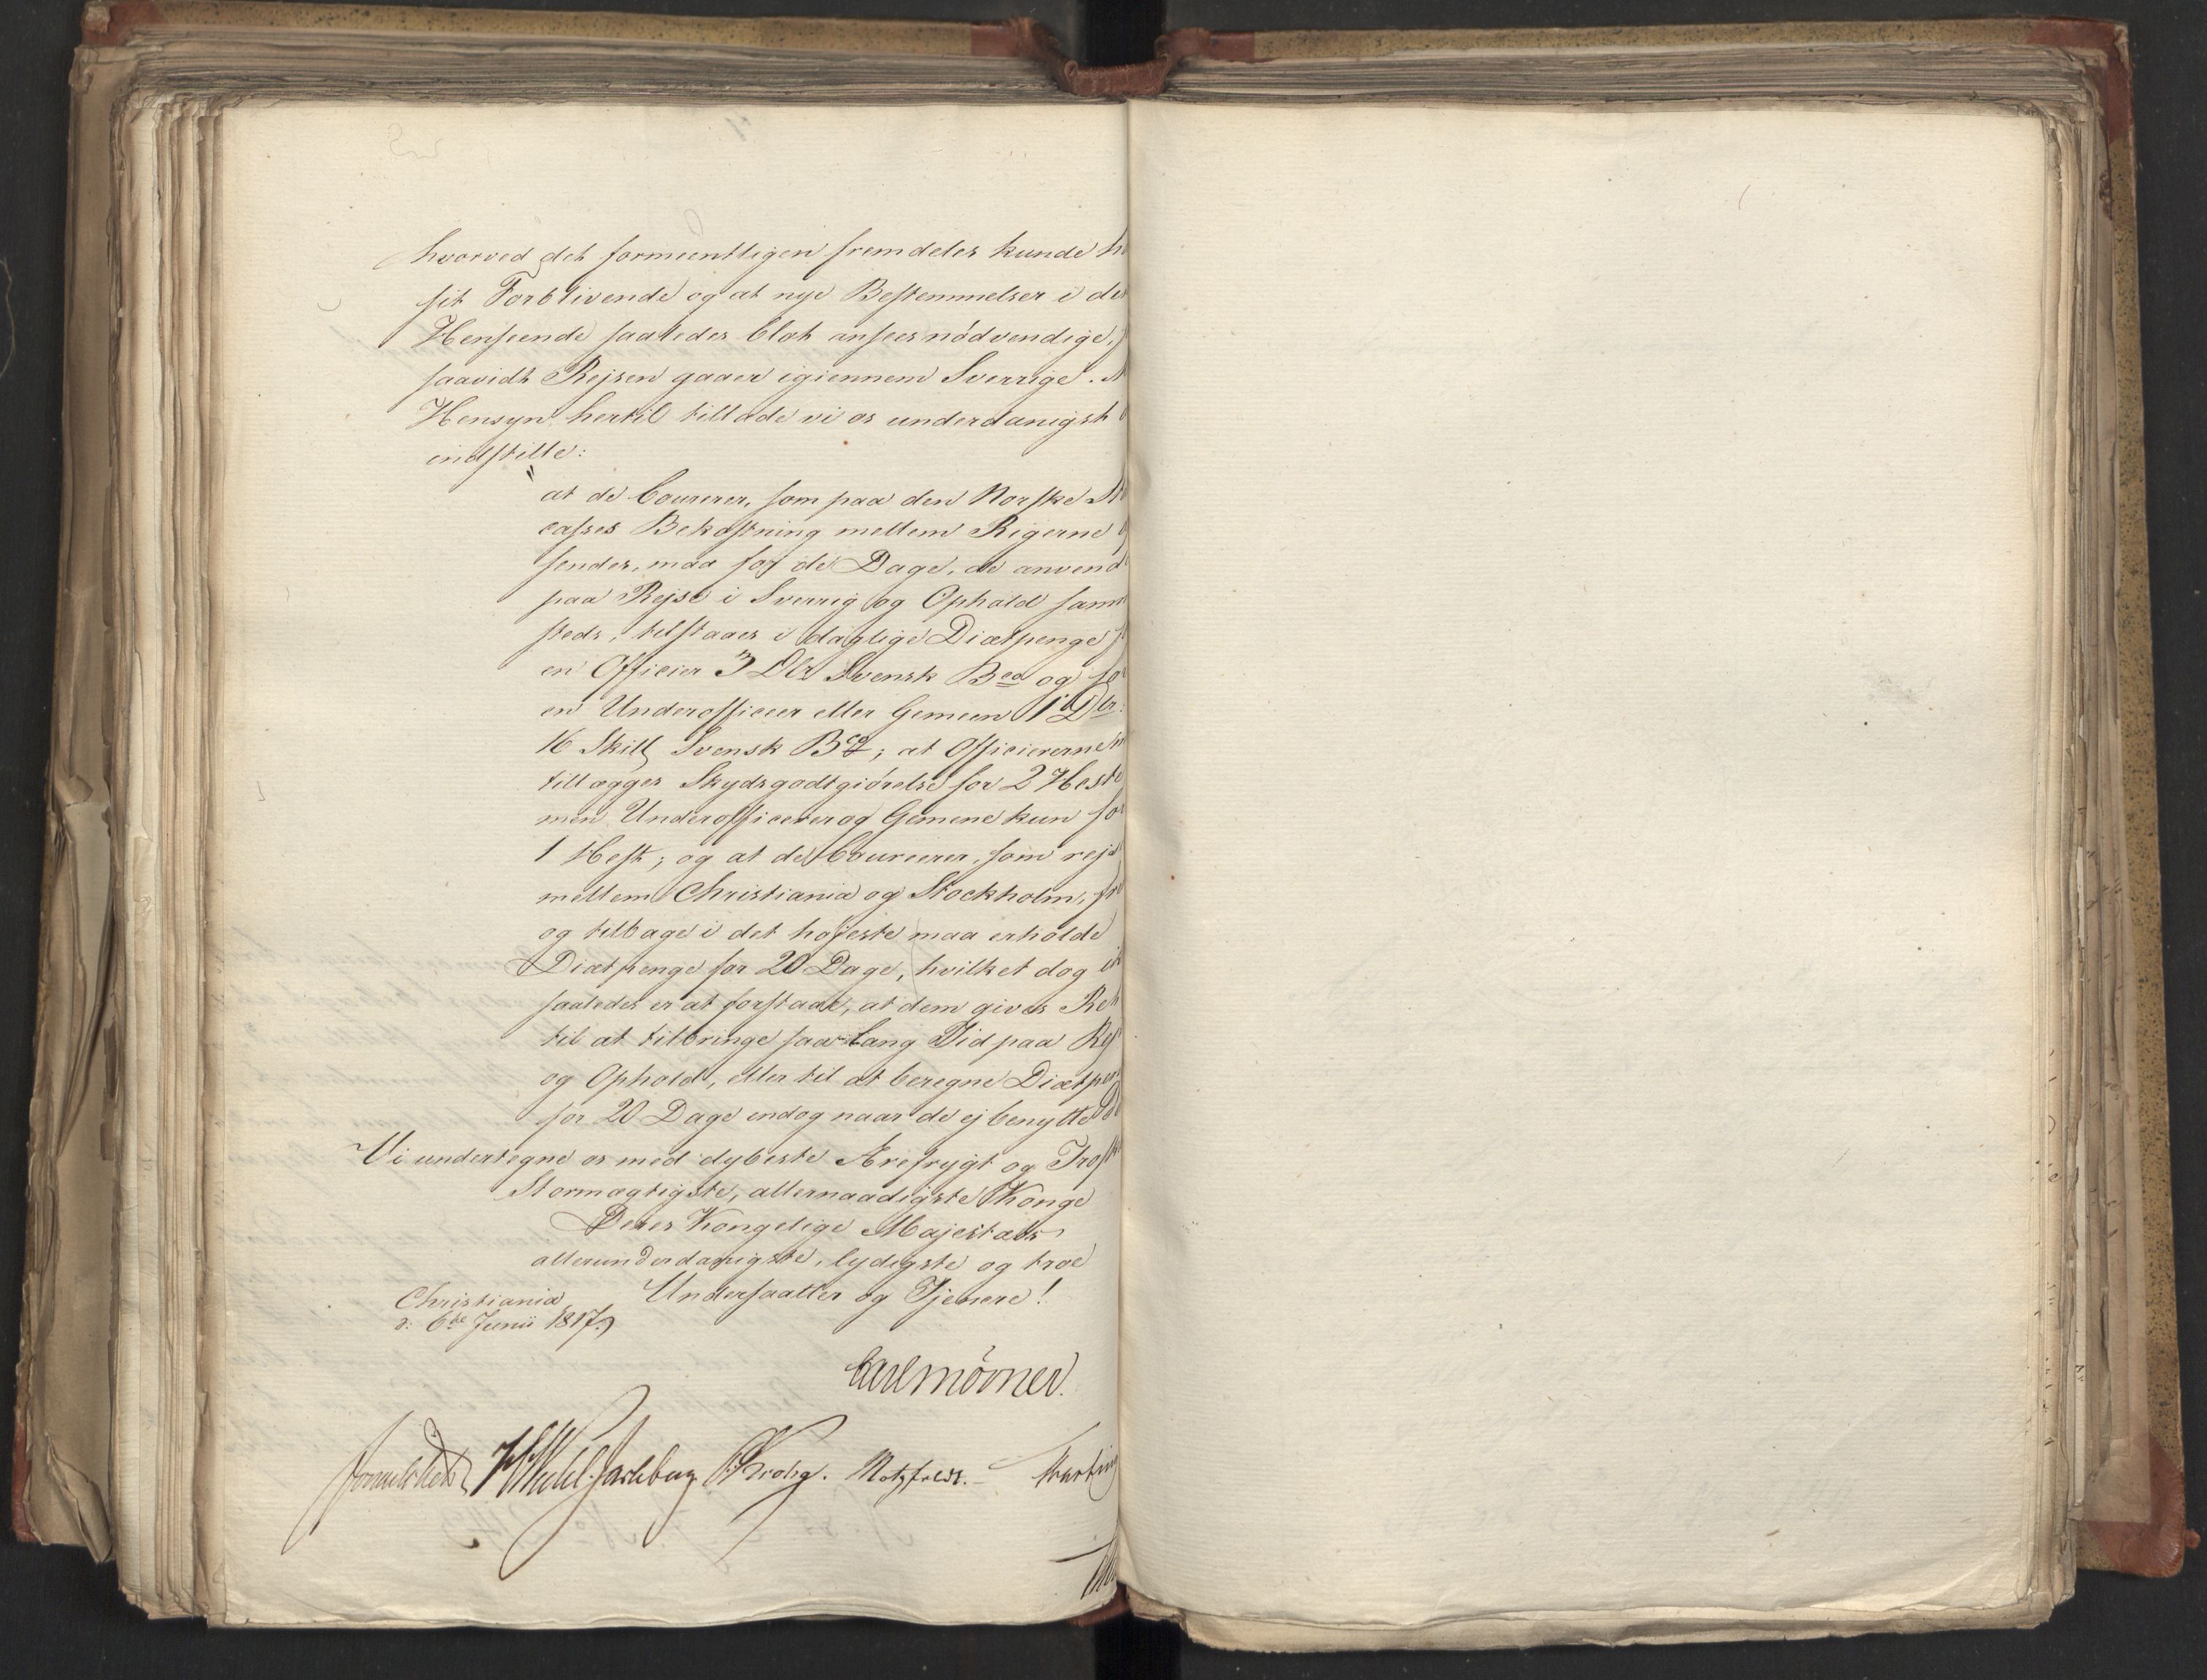 hvorved det formeentligen fremdeles kunde h
sit Forblivende og at nye Bestemmelser i de
Henseende saaledes blot ansees nødvendige,
saavidt Rejsen gaaer igiennem Sverrige.
Hensyn hertil tillade vi os underdanigst
indstille:
at de Courerer, som paa den Norske
casses Bekostning mellem Rigerne
sendes, maa for de Dage, de anvend
paa Rejse i Sverrig og Ophold sam
steds, tilstaaes i daglige Diætpenge
en Officier 3 Dlr Svensk Bco og for
en Underofficeer eller Gemeen 1 Dlr.
16 Skill Svensk Bco; at Officiererne
tillægges Skydsgodtgiørelse for 2 Heste
men Underofficerer og Gemene kun for
1 Hest; og at de Courerer, som rejse
mellem Christiania og Stockholm, fre
og tilbage i det højeste maa erholde
Diætpenge for 20 Dage, hvilket dog ik
saaledes er at forstaae, at dem gives Ret
til at tilbringe saa lang Tid paa Rejs
og Ophold, eller til at beregne Diætpen
for 20 Dage endog naar de ej benytte
Vi undertegne os med dybeste Ærefrygt og Trosk
Stormægtigste, allernaadigste Konge
Deres Kongelige Majestæts
allerunderdanigste, lydigste og troe
Undersaatter og Tjenere!
Christiania
d: 6te Junii 1817.
Carl Mörner.
Sommerhielm HWedel-Jarlsberg. CKrohg. Motzfeldt. –